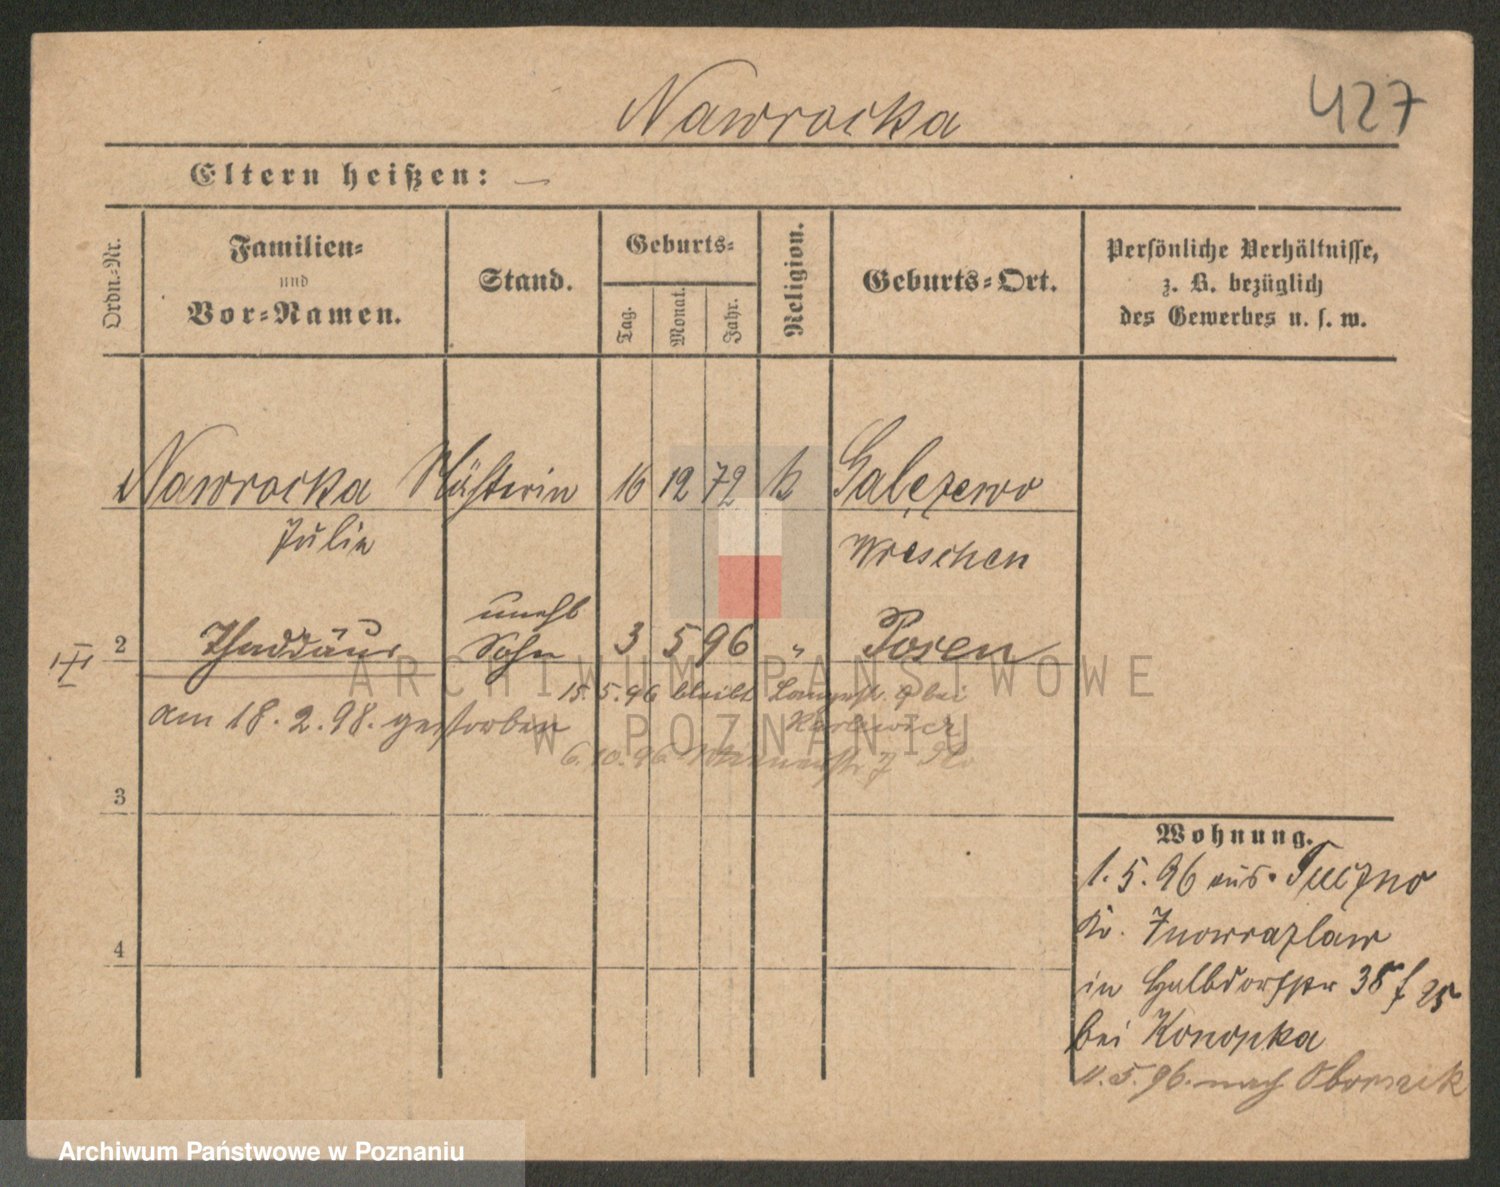 Nawrocka
427
Eltern heißen: —
Ordn.-Nr.
Familien-
und
Vor-Namen.
Stand.
Geburts-
Tag.
Monat.
Jahr.
Religion.
Geburts-Ort.
Persönliche Verhältnisse,
z. B. bezüglich
des Gewerbes u. s. w.
Nawrocka Nähterin 16 12 72 k Gałęzewo
Julie Wreschen
unehl
2 Thaddäus Sohn 3 5 96 " Posen
15.5.96 bleibt bei
am 18.2.98. gestorben
6.10.96
3
Wohnung.
1.5.96 aus Tuczno
Kr. Inowrazlaw
in Halbdorfstr 38
4
bei Konopka
11.5.96. nach
ARCHIWUM PAŃSTWOWE
W POZNANIU
Archiwum Państwowe w Poznaniu